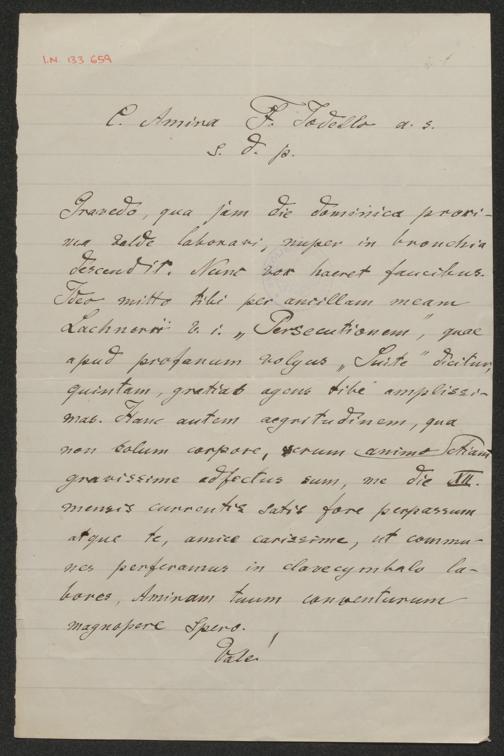 I.N. 133 659
C. Amina F. Jodello a. s.
s. d. p.
Gravedo, qua jam die dominica proxi-
ma valde laboravi, nuper in bronchia
descendit. Nunc vox haeret faucibus.
Ideo mitto tibi per ancillam meam
Lachnerii v. i. „Persecutionem", quae
apud profanum volgus „Suite" dicitur,
quintam, gratias agens tibi amplissi-
mas. Hanc autem aegritudinem, qua
non solum corpore, verum animo etiam
gravissime adfectus sum, me die XII.
mensis currentis satis fore perpassum
atque te, amice carissime, ut commu-
nes perferamus in clavecymbalo la-
bores, Aminam tuum conventurum
magnopere spero.
Vale!